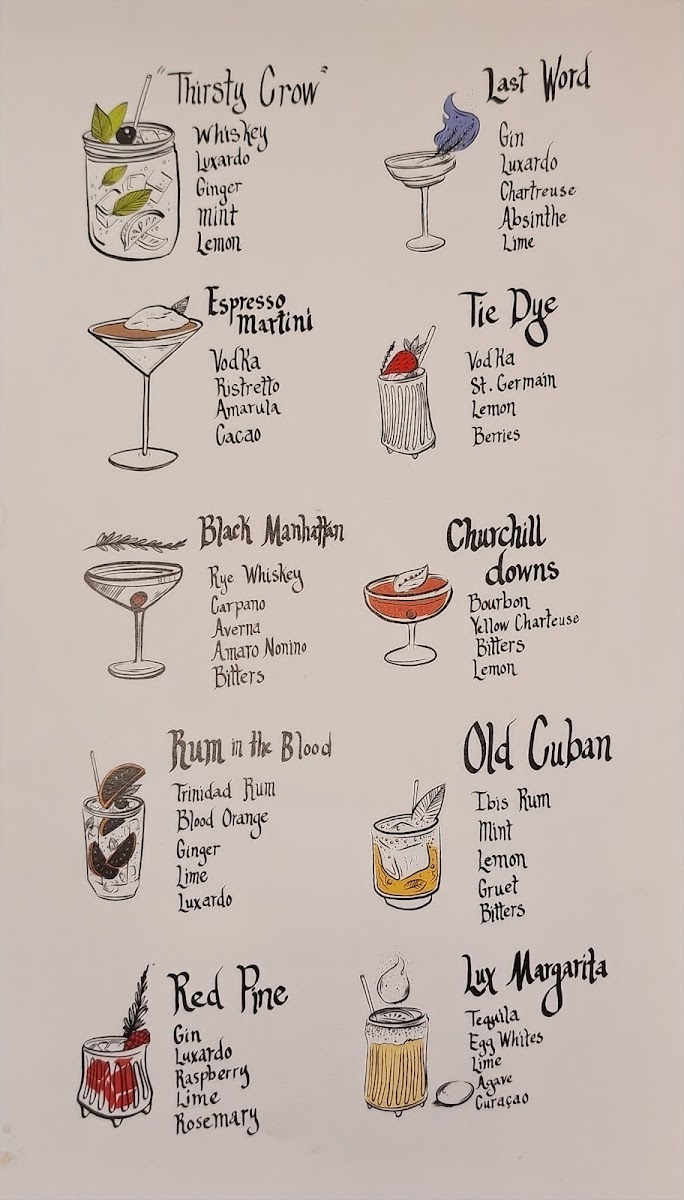 "Thirsty Crow"
Whiskey
Luxardo
Ginger
Mint
Lemon
Last Word
Gin
Luxardo
Chartreuse
Absinthe
Lime
Espresso
Martini
Vodka
Ristretto
Amarula
Cacao
Tie Dye
Vodka
St. Germain
Lemon
Berries
Black Manhattan
Rye Whiskey
Carpano
Averna
Amaro Nonino
Bitters
Churchill
downs
Bourbon
Yellow Charteuse
Bitters
Lemon
Rum in the Blood
Trinidad Rum
Blood Orange
Ginger
Lime
Luxardo
Old Cuban
Ibis Rum
Mint
Lemon
Gruet
Bitters
Red Pine
Gin
Luxardo
Raspberry
Lime
Rosemary
Lux Margarita
Tequila
Egg Whites
Lime
Agave
Curaçao